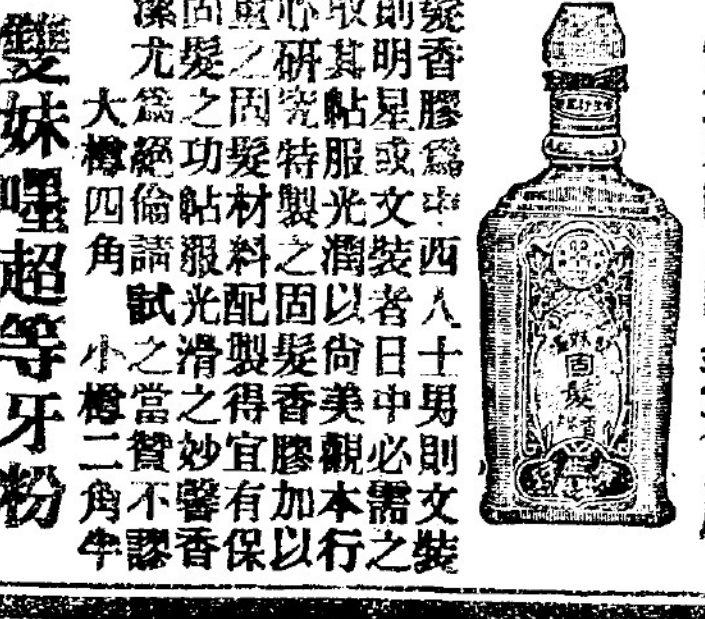 髮香膠爲中西人士男則文裝
則明星或文裝者日中必需之
取其帖服光潤以尚美觀本行
心研究特製之固髮香膠加以
重之固髮材料配製得宜有保
固髮之功帖服光滑之妙馨香
潔尤爲絕倫請試之當贊不謬
大樽四角 小樽二角半
雙妹嚜超等牙粉
固髮